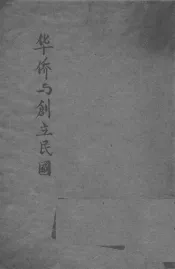 华侨与創立民國